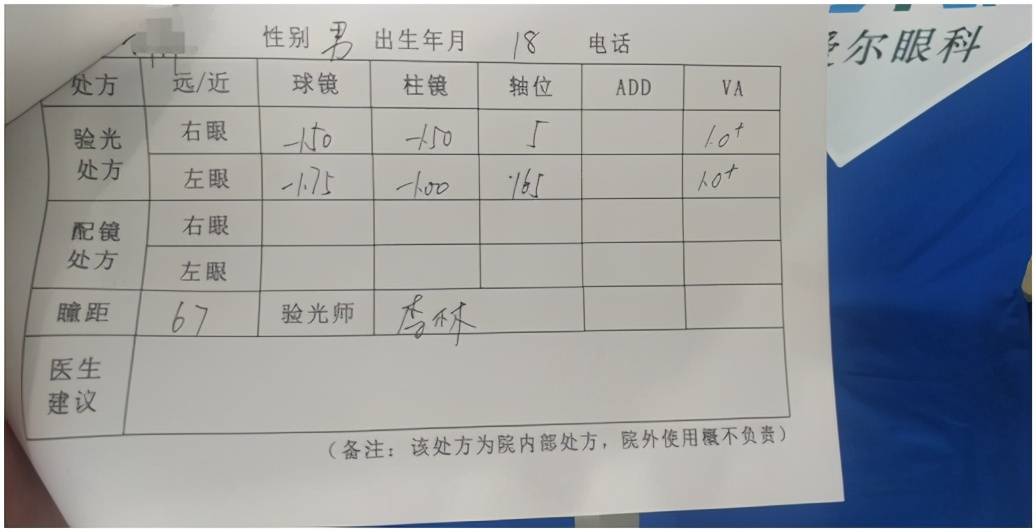 性别 男 出生年月 18 电话
爱尔眼科
处方 远/近 球镜 柱镜 轴位 ADD VA
验光处方 右眼 -1.50 -1.50 5 1.0+
左眼 -1.75 -1.00 165 1.0+
配镜处方 右眼
左眼
瞳距 67 验光师
医生建议
(备注：该处方为院内部处方，院外使用概不负责)